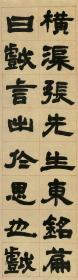 橫渠張先生東銘萹
曰戲言出於思也戲